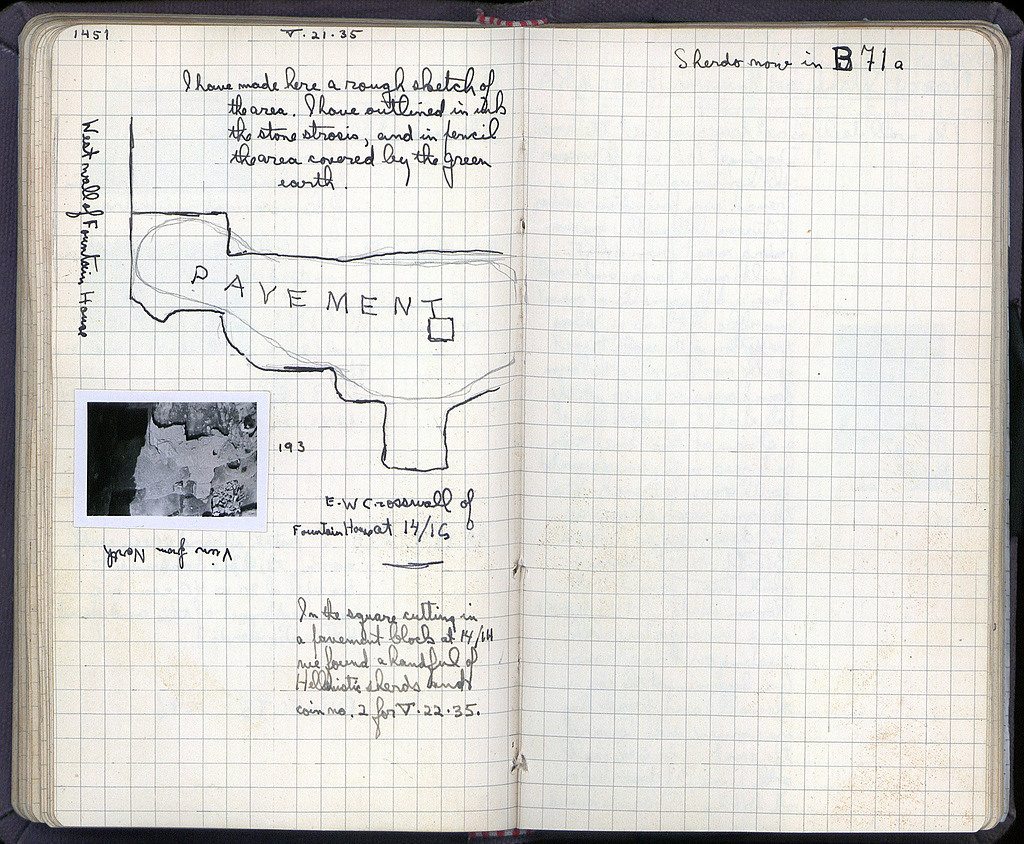 1451
V·21·35
I have made here a rough sketch of
the area. I have outlined in ink
the stone strosis, and in pencil
the area covered by the green
earth.
West wall of Fountain House
PAVEMENT
193
View from North
E-W Crosswall of
Fountain House at 14/16
In the square cutting in
a pavement block at 14/
we found a handful of
Hellenistic sherds and
coin no. 2 for V·22·35.
Sherds now in B 71a